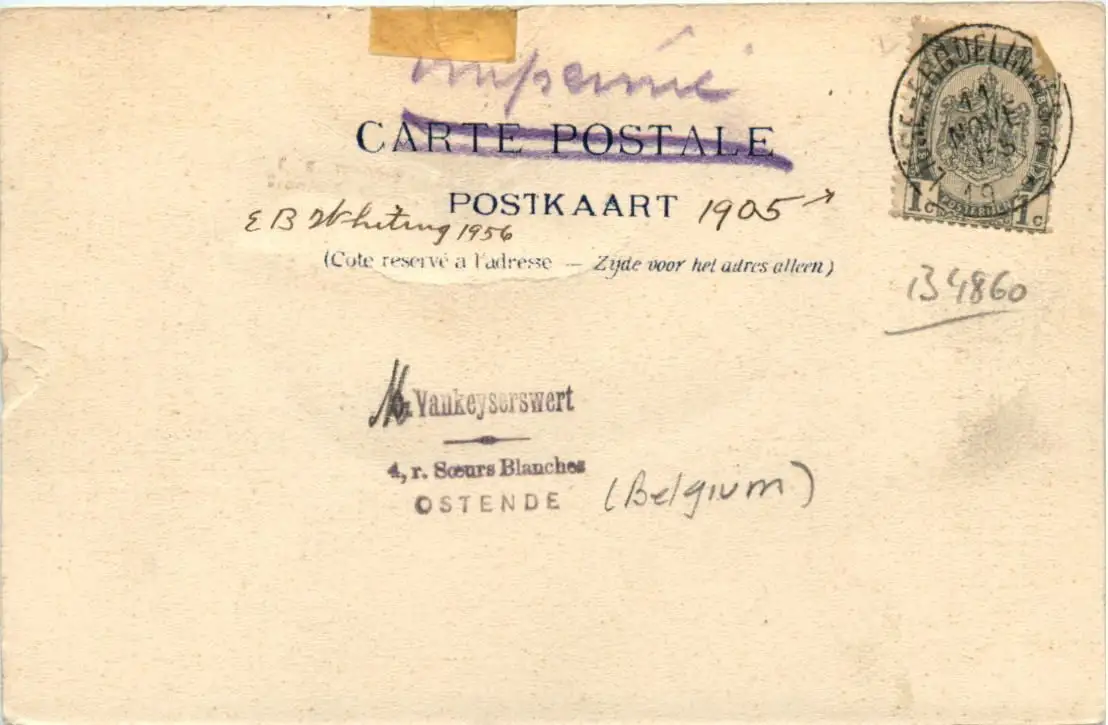 imprimé
CARTE POSTALE
POSTKAART 1905
E B Whiting 1956
(Côté reservé a l'adresse — Zijde voor het adres alleen)
ERQUELINNES
11
NOVE
7 19
1c 1c
B4860
M Vankeyserswert
4, r. Sœurs Blanches
OSTENDE (Belgium)